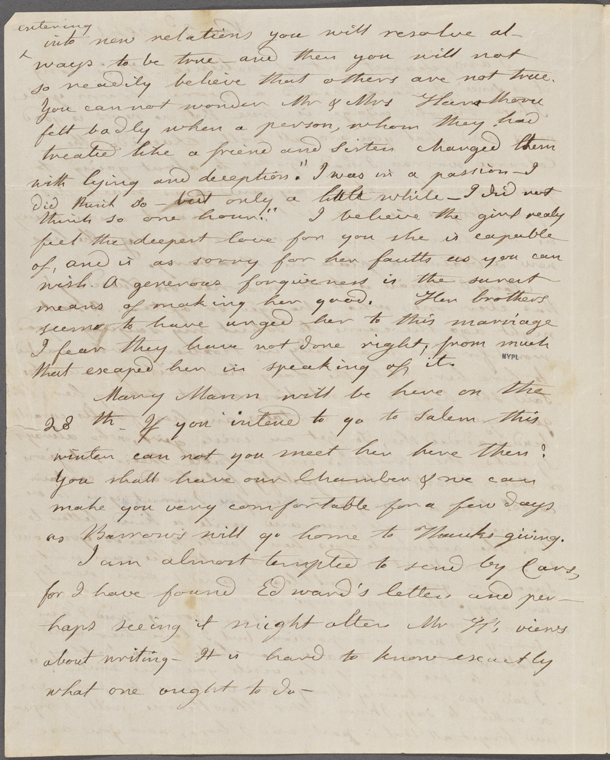 entering
^ into new relations you will resolve al-
ways to be true - and then you will not
so readily believe that others are not true.
You cannot wonder Mr & Mrs Hawthorne
felt badly when a person, whom they had
treated like a friend and sister charged them
with lying and deception." I was in a passion - I
did think so - but only a little while - I did not
think so one hour." I believe the girl realy
feel the deepest love for you she is capable
of, and is as sorry for her faults as you can
wish. A generous forgiveness is the surest
means of making her good. Her brothers
seems to have urged her to this marriage
I fear they have not done right, from much
that escaped her in speaking of it.
NYPL
Mary Mann will be here on the
28 th - If you intend to go to Salem this
winter can not you meet her here then?
You shall have our Chamber & we can
make you very comfortable for a few days
as Barrows will go home to Thanksgiving.
I am almost tempted to send by Cars,
for I have found Edward's letter and per-
haps seeing it might alter Mr H's views
about writing - It is hard to know exactly
what one ought to do -